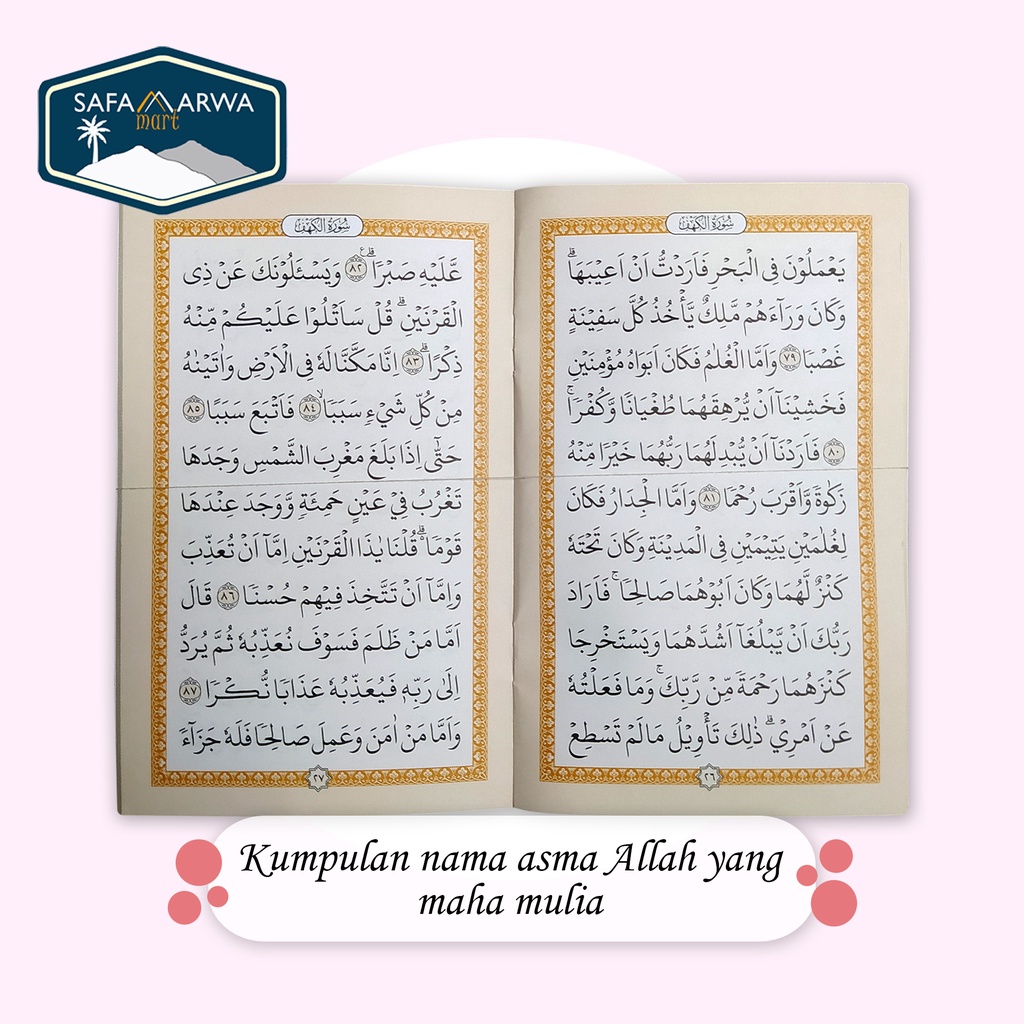 SAFA MARWA
mart
سُوْرَةُ الْكَهْفِ
يَعْمَلُوْنَ فِى الْبَحْرِ فَاَرَدْتُّ اَنْ اَعِيْبَهَاۗ
وَكَانَ وَرَاۤءَهُمْ مَّلِكٌ يَّأْخُذُ كُلَّ سَفِيْنَةٍ
غَصْبًا ٧٩ وَاَمَّا الْغُلٰمُ فَكَانَ اَبَوَاهُ مُؤْمِنَيْنِ
فَخَشِيْنَآ اَنْ يُّرْهِقَهُمَا طُغْيَانًا وَّكُفْرًاۚ
٨٠ فَاَرَدْنَآ اَنْ يُّبْدِلَهُمَا رَبُّهُمَا خَيْرًا مِّنْهُ
زَكٰوةً وَّاَقْرَبَ رُحْمًا ٨١ وَاَمَّا الْجِدَارُ فَكَانَ
لِغُلٰمَيْنِ يَتِيْمَيْنِ فِى الْمَدِيْنَةِ وَكَانَ تَحْتَهٗ
كَنْزٌ لَّهُمَا وَكَانَ اَبُوْهُمَا صَالِحًاۚ فَاَرَادَ
رَبُّكَ اَنْ يَّبْلُغَآ اَشُدَّهُمَا وَيَسْتَخْرِجَا
كَنْزَهُمَا رَحْمَةً مِّنْ رَّبِّكَۚ وَمَا فَعَلْتُهٗ
عَنْ اَمْرِيْۗ ذٰلِكَ تَأْوِيْلُ مَا لَمْ تَسْطِعْ
٢٦
سُوْرَةُ الْكَهْفِ
عَّلَيْهِ صَبْرًاۗ ࣖ ٨٢ وَيَسْـَٔلُوْنَكَ عَنْ ذِى
الْقَرْنَيْنِۗ قُلْ سَاَتْلُوْا عَلَيْكُمْ مِّنْهُ
ذِكْرًاۗ ٨٣ اِنَّا مَكَّنَّا لَهٗ فِى الْاَرْضِ وَاٰتَيْنٰهُ
مِنْ كُلِّ شَيْءٍ سَبَبًاۙ ٨٤ فَاَتْبَعَ سَبَبًا ٨٥
حَتّٰٓى اِذَا بَلَغَ مَغْرِبَ الشَّمْسِ وَجَدَهَا
تَغْرُبُ فِيْ عَيْنٍ حَمِئَةٍ وَّوَجَدَ عِنْدَهَا
قَوْمًاۗ قُلْنَا يٰذَا الْقَرْنَيْنِ اِمَّآ اَنْ تُعَذِّبَ
وَاِمَّآ اَنْ تَتَّخِذَ فِيْهِمْ حُسْنًا ٨٦ قَالَ
اَمَّا مَنْ ظَلَمَ فَسَوْفَ نُعَذِّبُهٗ ثُمَّ يُرَدُّ
اِلٰى رَبِّهٖ فَيُعَذِّبُهٗ عَذَابًا نُّكْرًا ٨٧
وَاَمَّا مَنْ اٰمَنَ وَعَمِلَ صَالِحًا فَلَهٗ جَزَاۤءً
٢٧
Kumpulan nama asma Allah yang
maha mulia